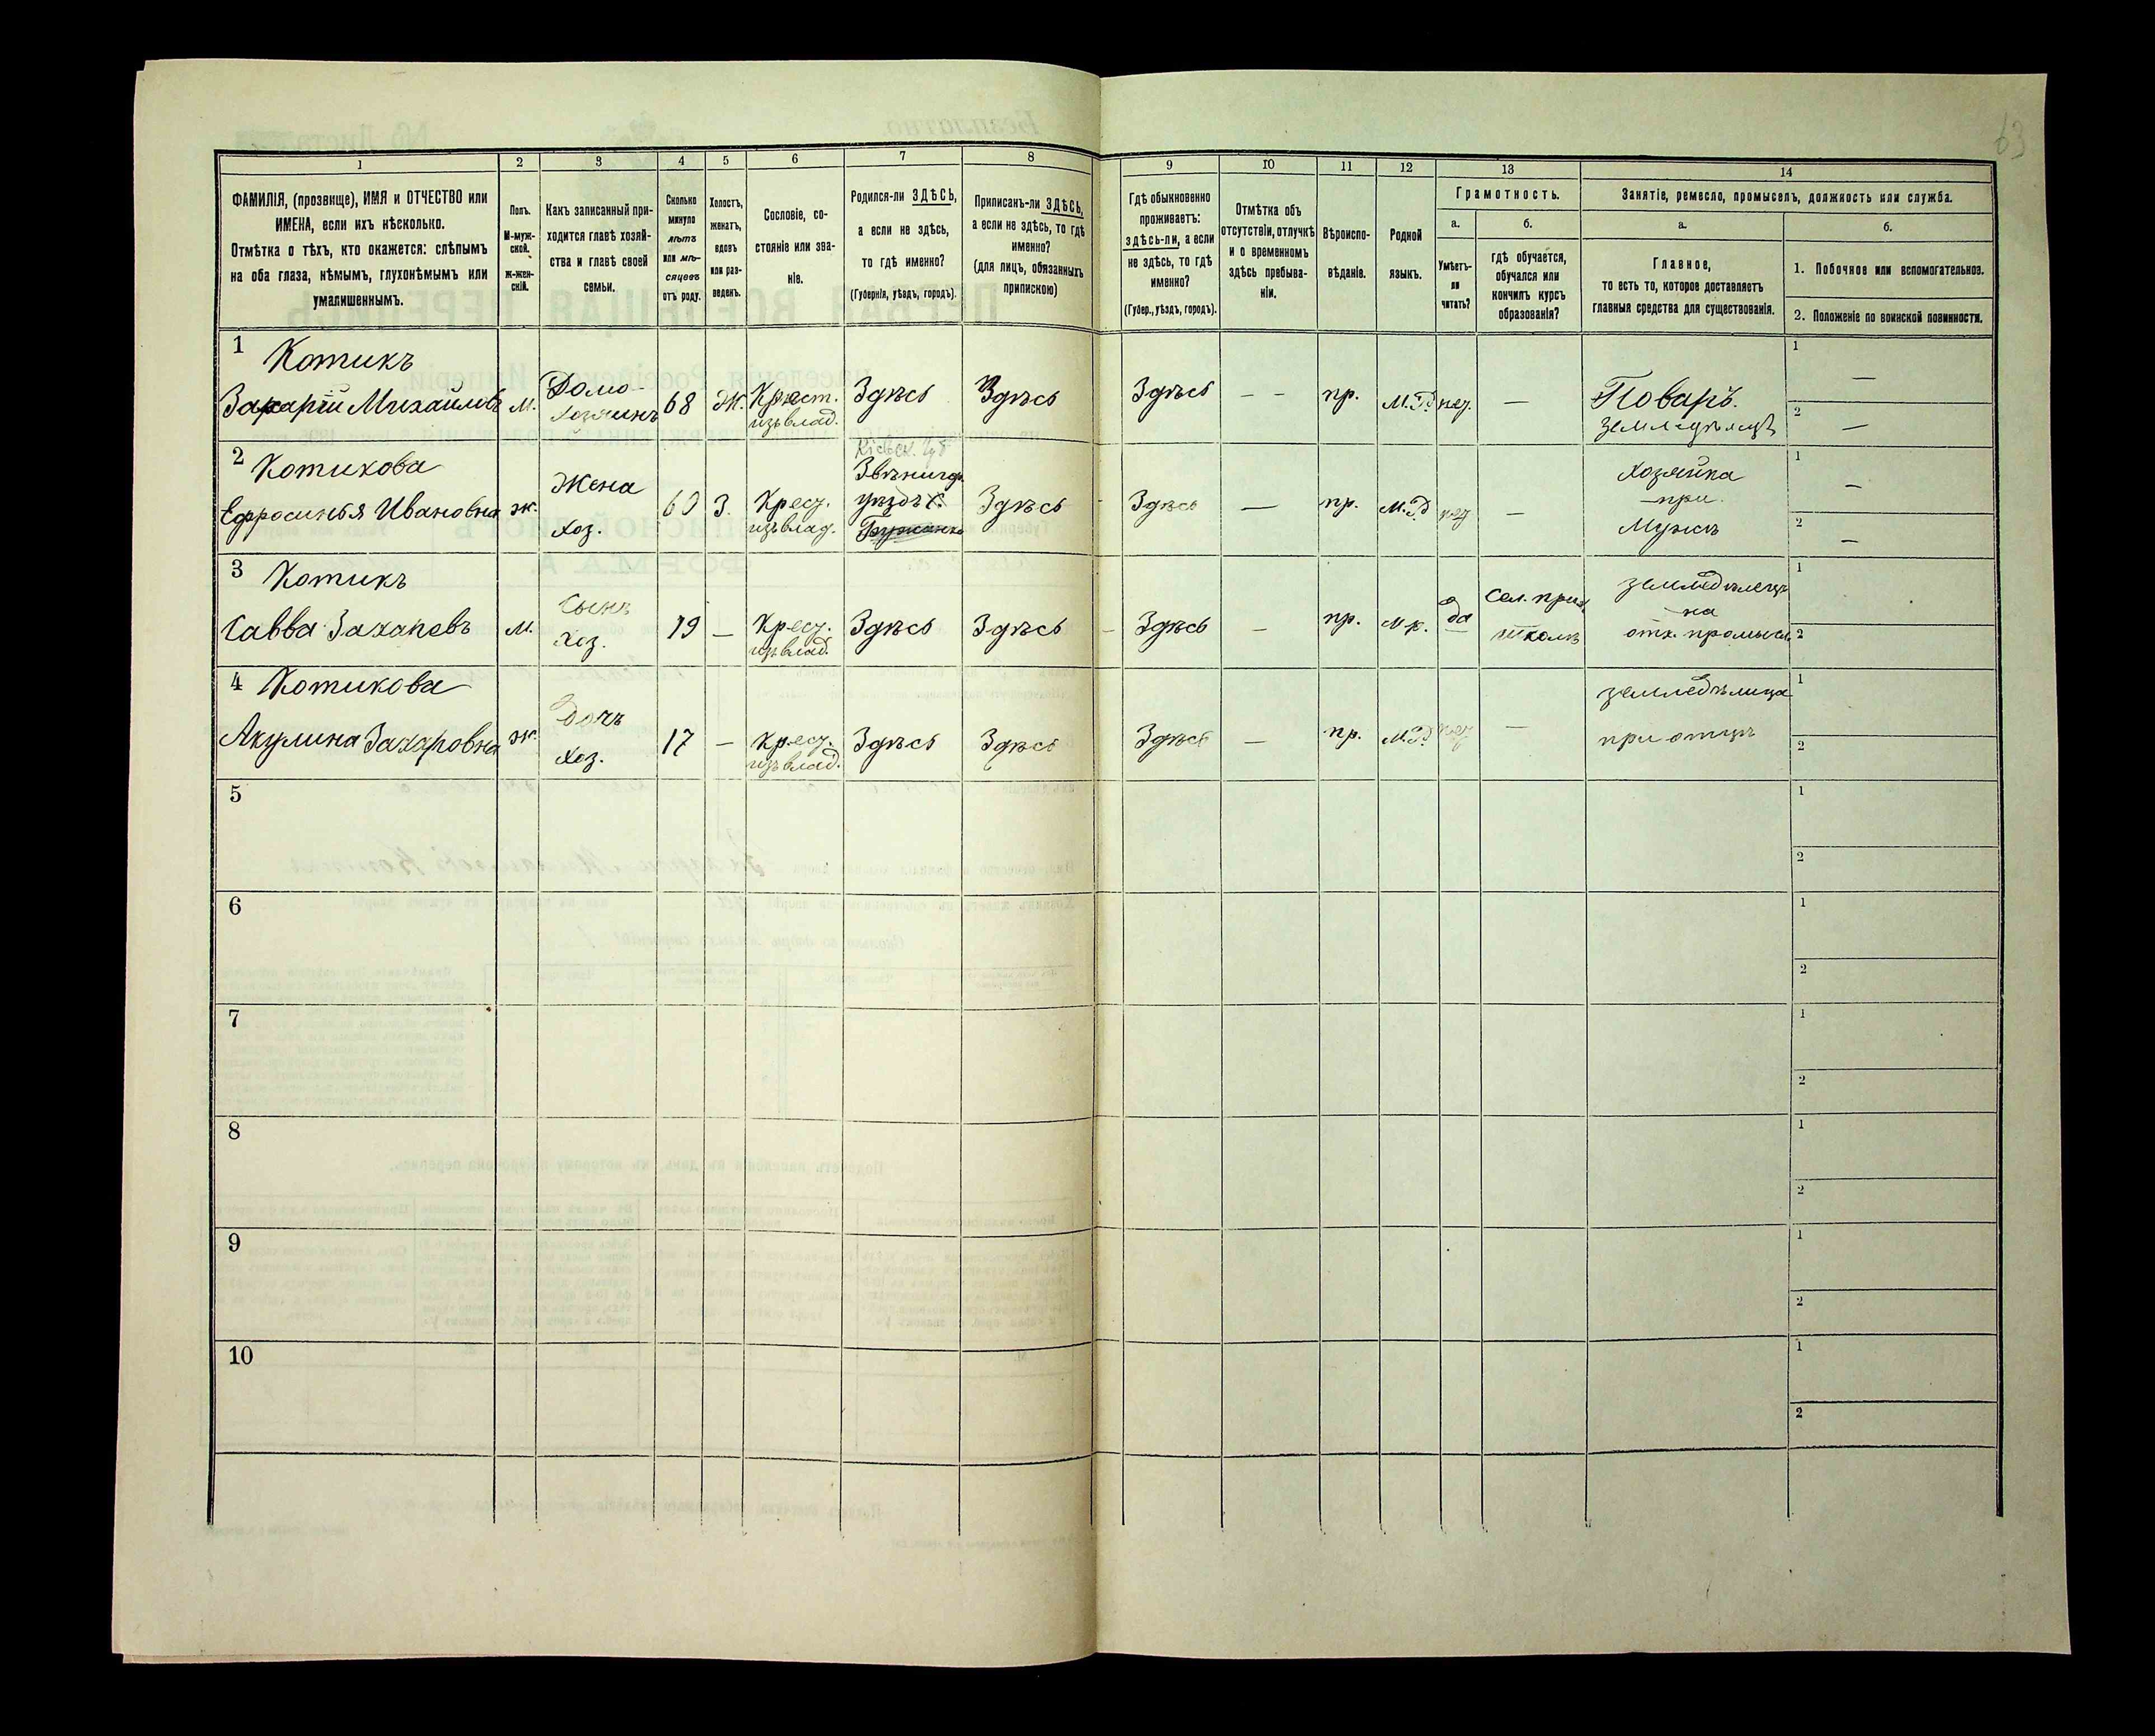 63
1 2 3 4 5 6 7 8 9 10 11 12 13 14
ФАМИЛІЯ, (прозвище), ИМЯ и ОТЧЕСТВО или
ИМЕНА, если ихъ нѣсколько.
Отмѣтка о тѣхъ, кто окажется: слѣпымъ
на оба глаза, нѣмымъ, глухонѣмымъ или
умалишеннымъ.
Полъ.
М-муж-
ской.
ж-жен-
скій.
Какъ записанный при-
ходится главѣ хозяй-
ства и главѣ своей
семьи.
Сколько
минуло
лѣтъ
или мѣ-
сяцевъ
отъ роду.
Холостъ,
женатъ,
вдовъ
или раз-
веденъ.
Сословіе, со-
стояніе или зва-
ніе.
Родился-ли ЗДѢСЬ,
а если не здѣсь,
то гдѣ именно?
(Губернія, уѣздъ, городъ).
Приписанъ-ли ЗДѢСЬ,
а если не здѣсь, то гдѣ
именно?
(для лицъ, обязанныхъ
припискою)
Гдѣ обыкновенно
проживаетъ:
здѣсь-ли, а если
не здѣсь, то гдѣ
именно?
(Губер., уѣздъ, городъ).
Отмѣтка объ
отсутствіи, отлучкѣ
и о временномъ
здѣсь пребыва-
ніи.
Вѣроиспо-
вѣданіе.
Родной
языкъ.
Грамотность.
а.
Умѣетъ-
ли
читать?
б.
гдѣ обучается,
обучался или
кончилъ курсъ
образованія?
Занятіе, ремесло, промыселъ, должность или служба.
а.
Главное,
то есть то, которое доставляетъ
главныя средства для существованія.
б.
1. Побочное или вспомогательное.
2. Положеніе по воинской повинности.
1 Котикъ
Захарій Михайловъ
м.
Домо-
хозяинъ
68
Ж.
Крест.
изъ влад.
Здѣсь
Здѣсь
Здѣсь
– –
пр.
М.Р.
нег.
—
Поваръ.
1 —
2 —
2 Котикова
Ефросинья Ивановна
ж.
Жена
хоз.
60
З.
Крес.
изъ влад.
Кіевск. Губ
Звѣнигор.
уѣздъ
Здѣсь
Здѣсь
—
пр.
М.Р
—
Хозяйка
при
Мужѣ
1 —
2 —
3 Котикъ
Савва Захаровъ
м.
Сынъ
хоз.
19
—
Крес.
изъ влад.
Здѣсь
Здѣсь
Здѣсь
–
пр.
да
Сел. прих.
школѣ
землед
на
отх. промысл.
1
2
4 Котикова
Акулина Захаровна
ж.
Дочь
хоз.
17
—
Крес.
изъ влад.
Здѣсь
Здѣсь
Здѣсь
—
пр.
М.Р.
—
земледѣлица
при отцѣ
1
2
5
1
2
6
1
2
7
1
2
8
1
2
9
1
2
10
1
2